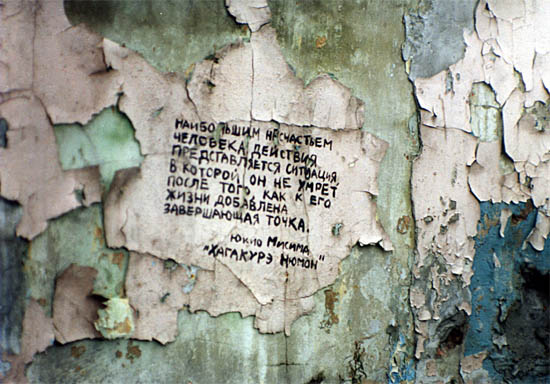 НАИБОЛЬШИМ НЕСЧАСТЬЕМ
ЧЕЛОВЕКА ДЕЙСТВИЯ
ПРЕДСТАВЛЯЕТСЯ СИТУАЦИЯ,
В КОТОРОЙ ОН НЕ УМРЁТ
ПОСЛЕ ТОГО КАК К ЕГО
ЖИЗНИ ДОБАВЛЕНА
ЗАВЕРШАЮЩАЯ ТОЧКА.
ЮКИО МИСИМА
"ХАГАКУРЭ НЮМОН"